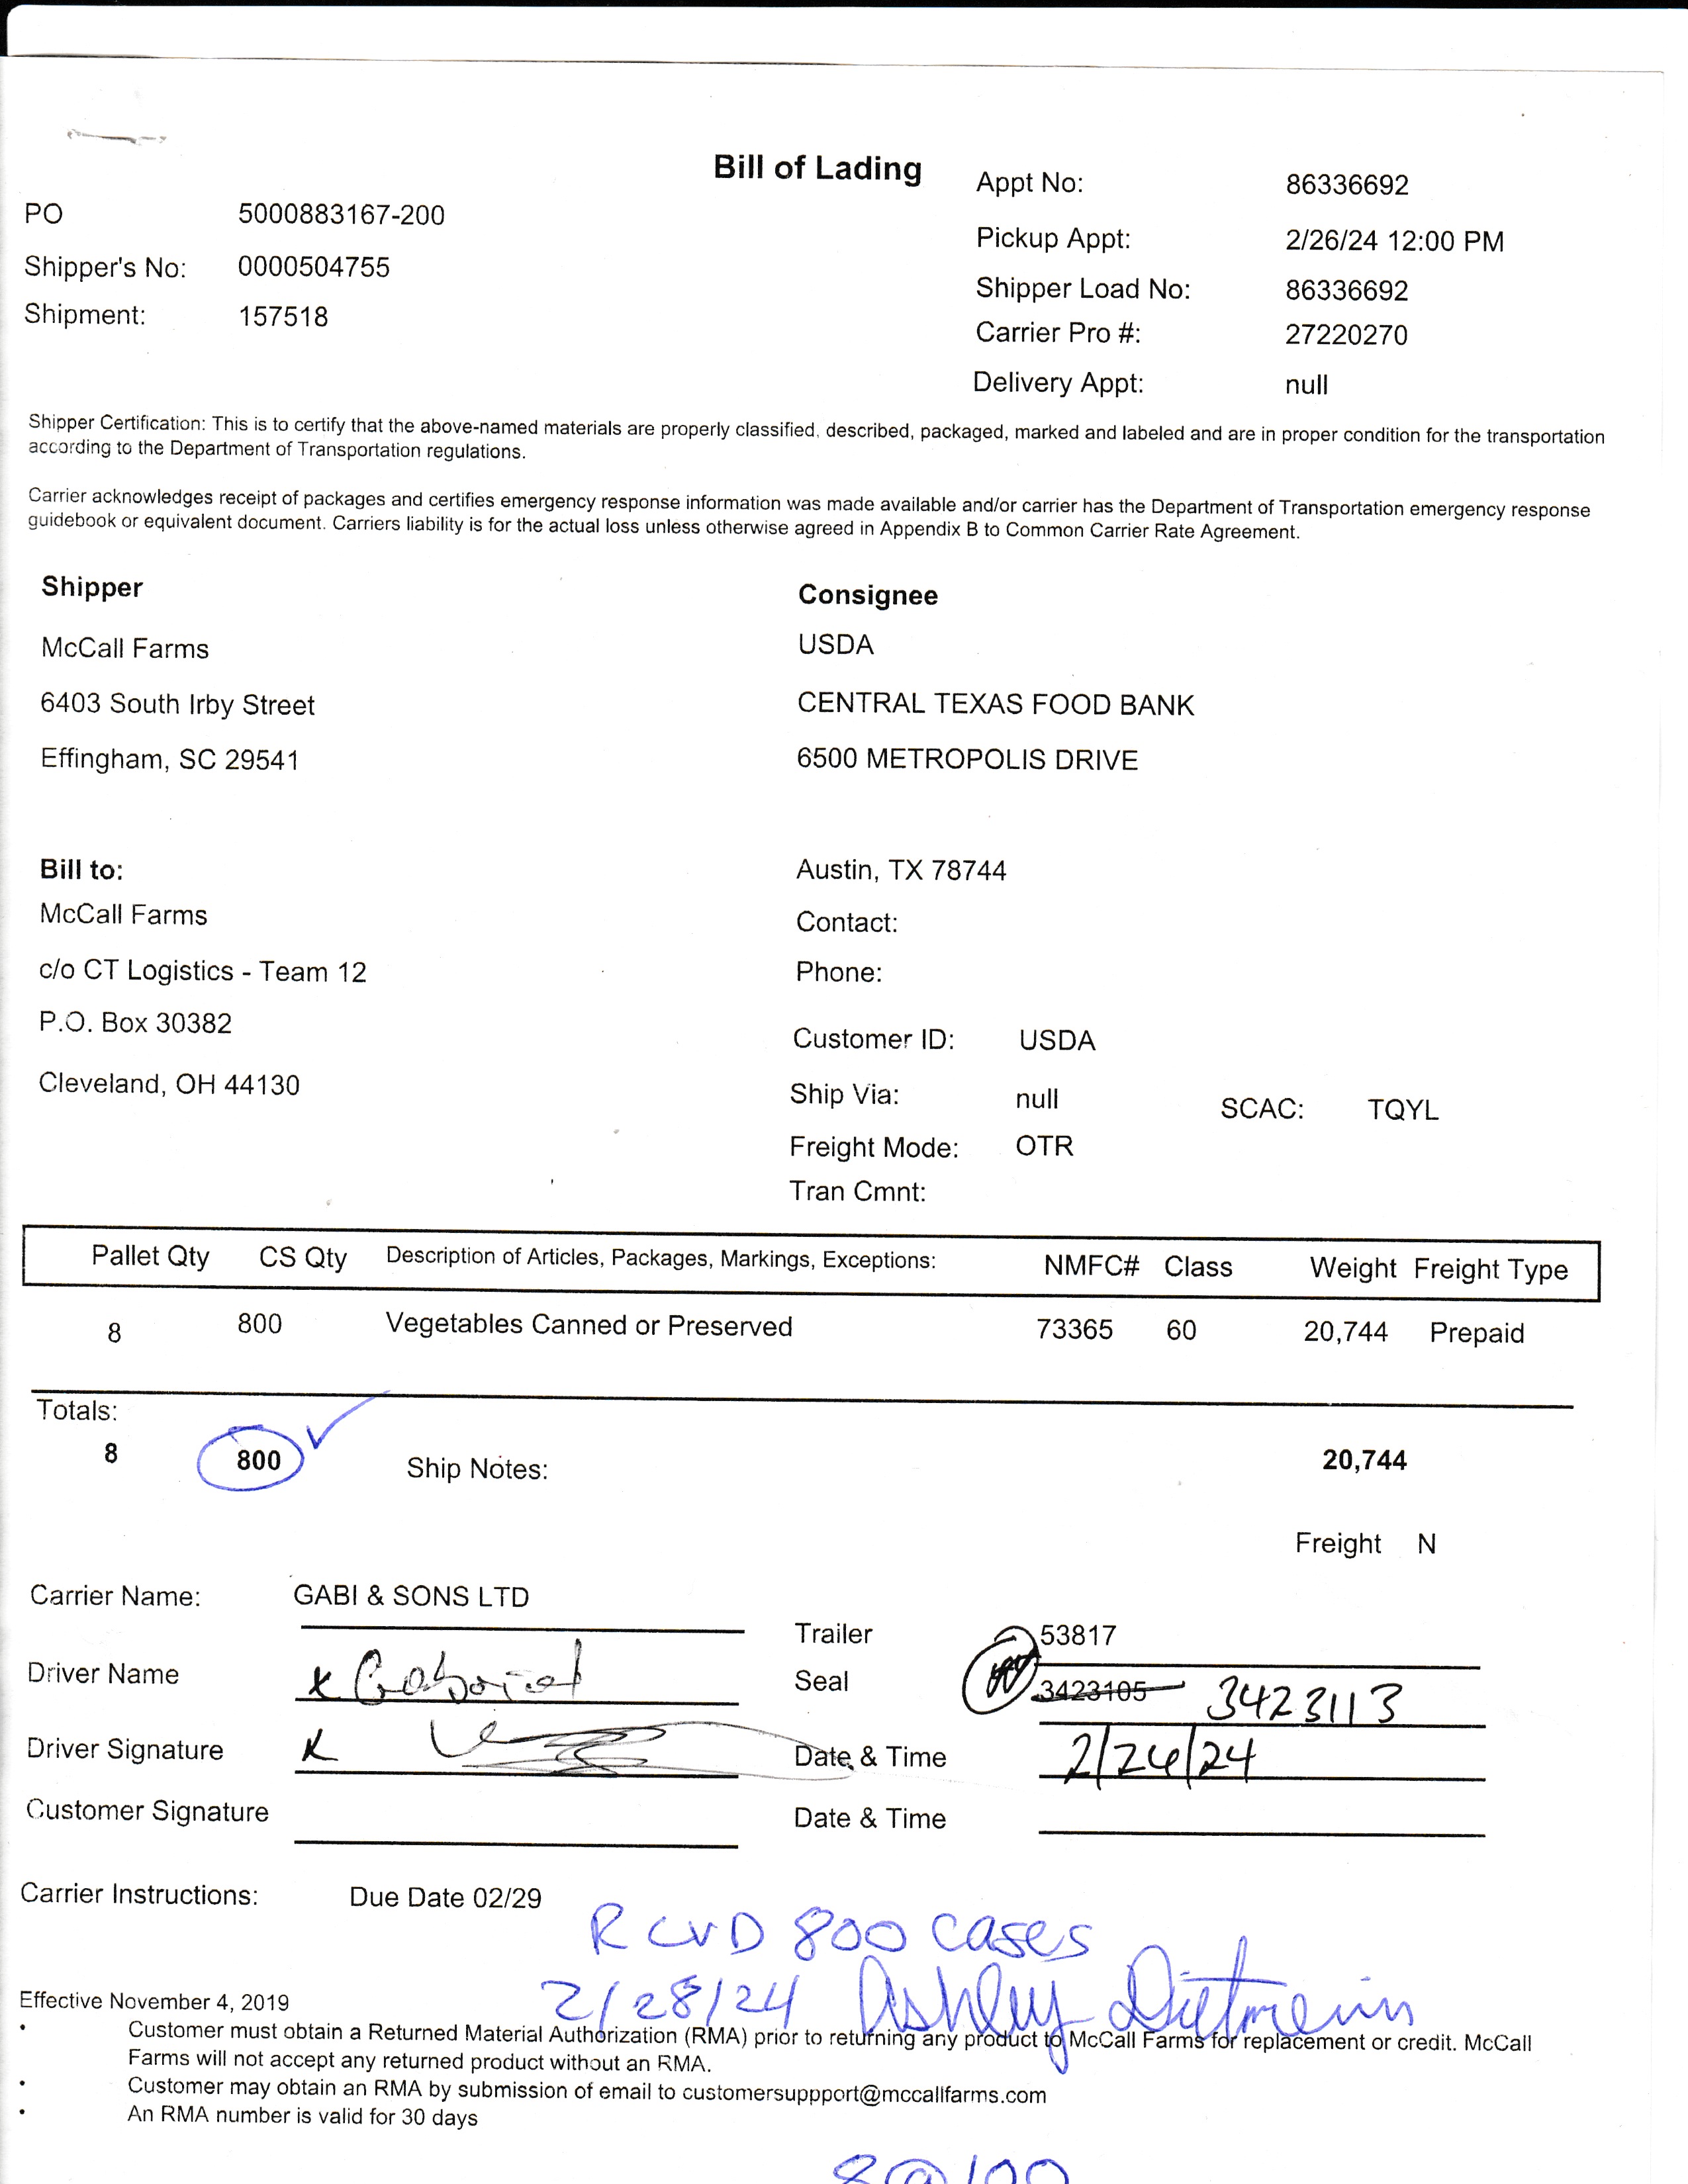 Bill of Lading
PO 5000883167-200
Shipper's No: 0000504755
Shipment: 157518
Appt No: 86336692
Pickup Appt: 2/26/24 12:00 PM
Shipper Load No: 86336692
Carrier Pro #: 27220270
Delivery Appt: null
Shipper Certification: This is to certify that the above-named materials are properly classified, described, packaged, marked and labeled and are in proper condition for the transportation
according to the Department of Transportation regulations.
Carrier acknowledges receipt of packages and certifies emergency response information was made available and/or carrier has the Department of Transportation emergency response
guidebook or equivalent document. Carriers liability is for the actual loss unless otherwise agreed in Appendix B to Common Carrier Rate Agreement.
Shipper
McCall Farms
6403 South Irby Street
Effingham, SC 29541
Consignee
USDA
CENTRAL TEXAS FOOD BANK
6500 METROPOLIS DRIVE
Austin, TX 78744
Contact:
Phone:
Bill to:
McCall Farms
c/o CT Logistics - Team 12
P.O. Box 30382
Cleveland, OH 44130
Customer ID: USDA
Ship Via: null SCAC: TQYL
Freight Mode: OTR
Tran Cmnt:
Pallet Qty CS Qty Description of Articles, Packages, Markings, Exceptions: NMFC# Class Weight Freight Type
8 800 Vegetables Canned or Preserved 73365 60 20,744 Prepaid
Totals:
8 800 Ship Notes: 20,744
Freight N
Carrier Name: GABI & SONS LTD
Trailer 53817
Driver Name x Gabriel
Seal 3423105 3423113
Driver Signature x
Date & Time 2/26/24
Customer Signature
Date & Time
Carrier Instructions: Due Date 02/29
RCVD 800 cases
2/28/24 Ashley
Effective November 4, 2019
• Customer must obtain a Returned Material Authorization (RMA) prior to returning any product to McCall Farms for replacement or credit. McCall
Farms will not accept any returned product without an RMA.
• Customer may obtain an RMA by submission of email to customersuppport@mccallfarms.com
• An RMA number is valid for 30 days
8@100